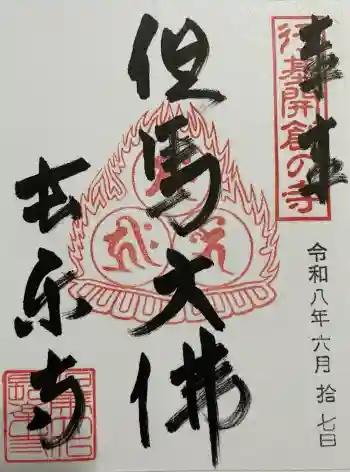 奉拝
行基開創の寺
但馬大佛
長楽寺
令和八年六月拾七日